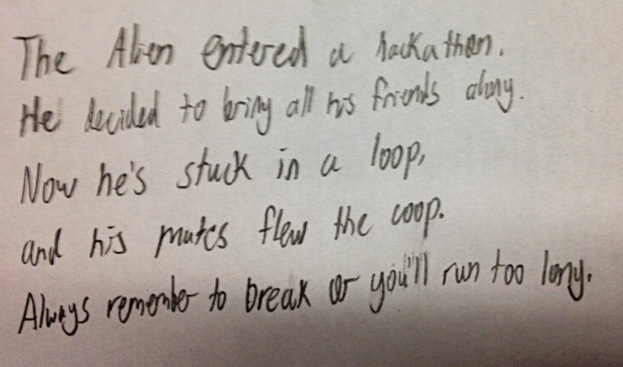 The Alien entered a hackathon.
He decided to bring all his friends along.
Now he's stuck in a loop,
and his mates flew the coop.
Always remember to break or you'll run too long.